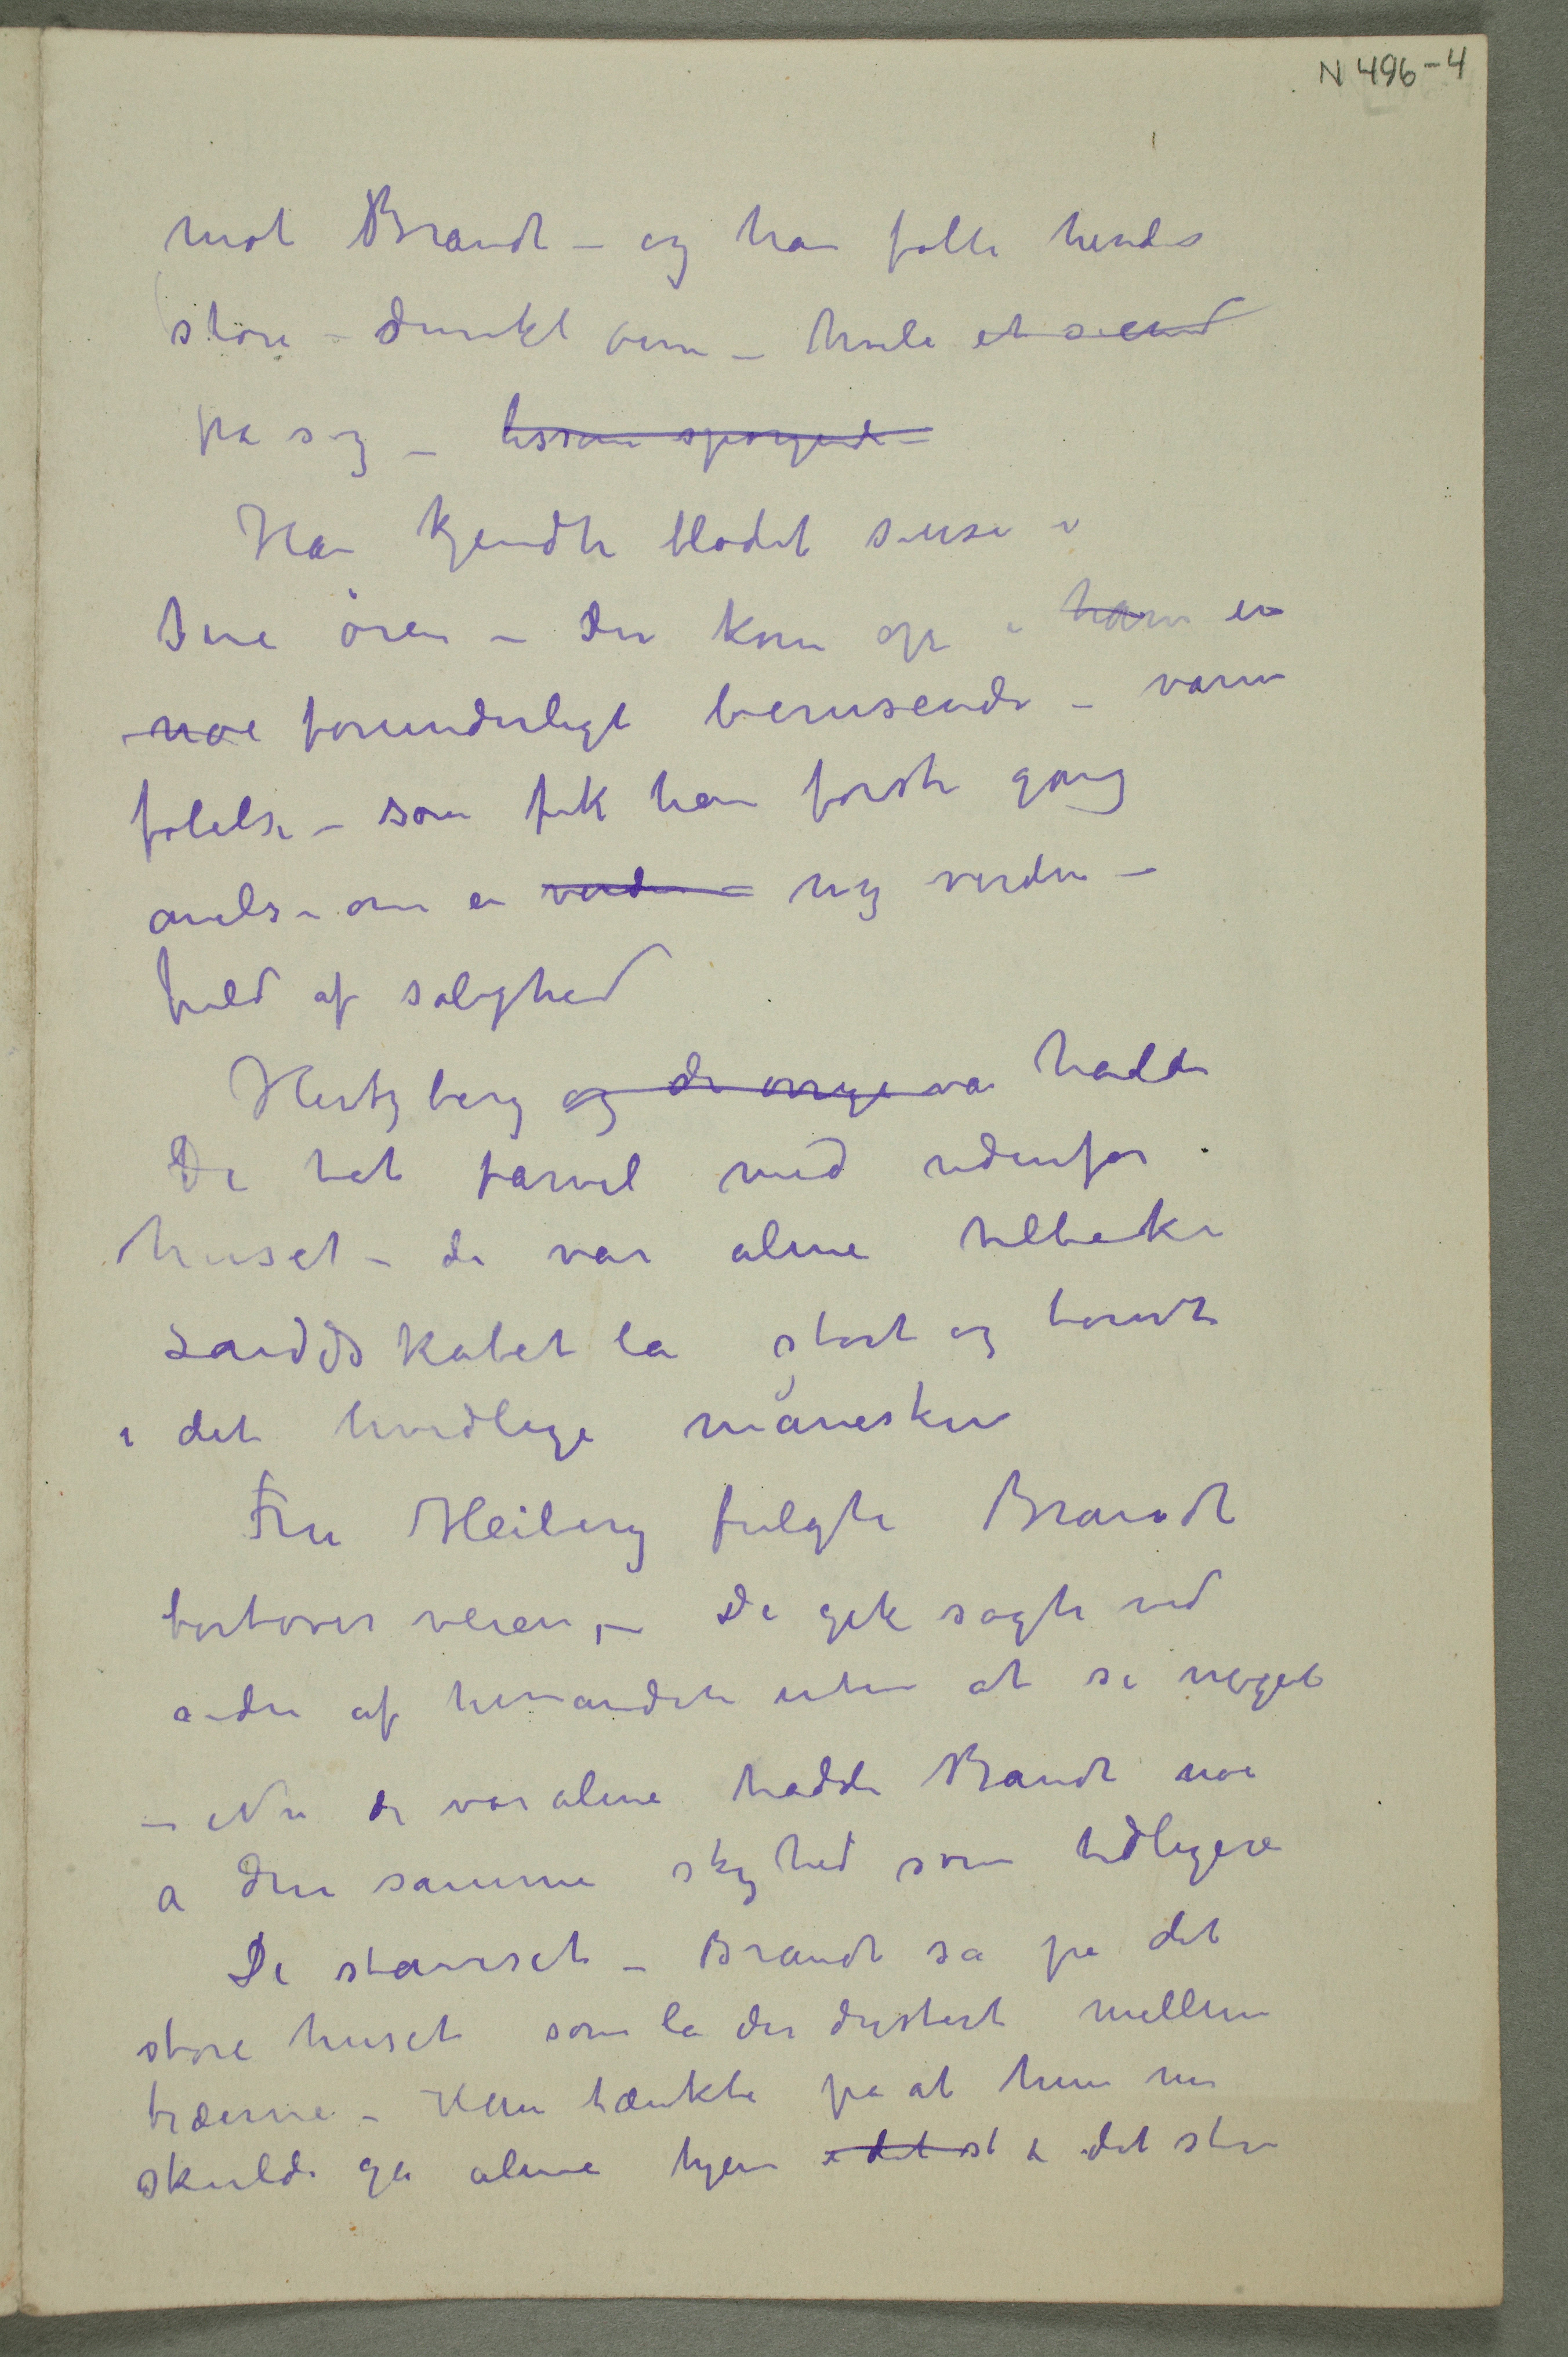 N 496-4
mot Brandt – og han følte hendes
store – dunkle øine – hvile et sekund
på sig – lissom spørgende –
Han kjendte blodet suse i
sine ører – der kom op i ham en
noe forunderligt berusende – varm
følelse – som fik han første gang
anelse om en verden – ny verden –
fuld af salighed
Hertzberg og de øvrige var hadde
De tat farvel med udenfor
huset – de var alene tilbake
Landdskabet la stort og
i det hvidlige måneskin
Fru Heiberg fulgte Brandt
bortover veien, – De gik sagte ved
siden af hinanden uten at si noget
– Nu de var alene hadde Brandt noe
a den samme skyhed som tidligere
De stanset – Brandt så på det
store huset som la der dystert mellem
træerne – Han tænkte på at hun nu
skulde gå alene hjem i det st i det store